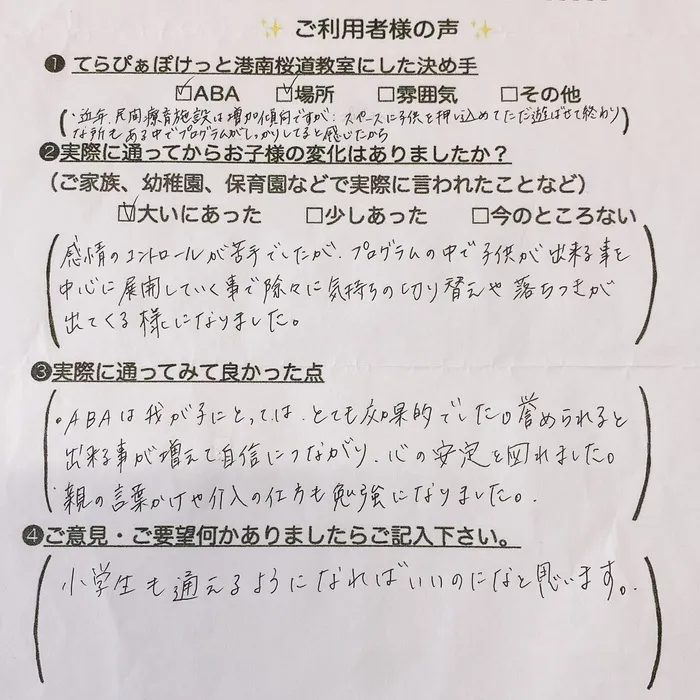 ✨ ご利用者様の声 ✨
❶ てらぴぁぽけっと港南桜道教室にした決め手
☑ABA ☑場所 □雰囲気 □その他
(・近年、民間療育施設は増加傾向ですが、スペースに子供を押し込めてただ遊ばせて終わり
な所もある中でプログラムがしっかりしてると感じたから)
❷実際に通ってからお子様の変化はありましたか？
（ご家族、幼稚園、保育園などで実際に言われたことなど）
☑大いにあった □少しあった □今のところない
感情のコントロールが苦手でしたが、プログラムの中で子供が出来る事を
中心に展開していく事で除々に気持ちの切り替えや落ちつきが
出てくる様になりました。
❸実際に通ってみて良かった点
・ABAは我が子にとっては、とても効果的でした。誉められると
出来る事が増えて自信につながり、心の安定を図れました。
・親の言葉かけや介入の仕方も勉強になりました。
❹ご意見・ご要望何かありましたらご記入下さい。
小学生も通えるようになればいいのになと思います。